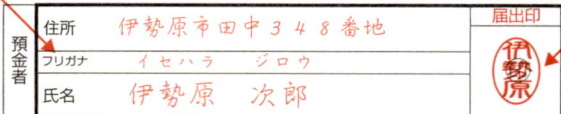 預金者
住所 伊勢原市田中348番地
フリガナ イセハラ ジロウ
氏名 伊勢原 次郎
届出印
伊勢原